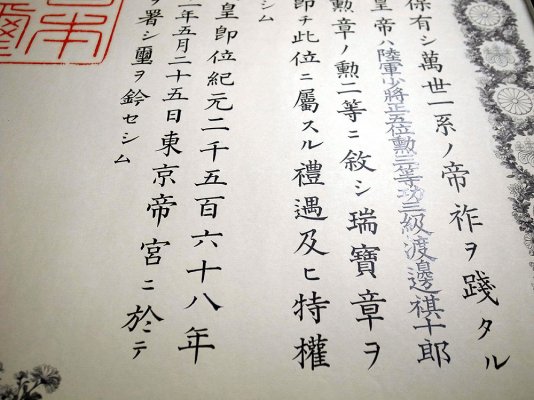 保有シ萬世一系ノ帝祚ヲ踐タル
皇帝ハ陸軍少將正五位勲三等功三級渡邊祺十郎
勲章ノ勲二等ニ敘シ瑞寶章ヲ
即チ此位ニ屬スル禮遇及ヒ特權
シム
皇即位紀元二千五百六十八年
一年五月二十五日東京帝宮ニ於テ
ヲ署シ璽ヲ鈐セシム
本
璽